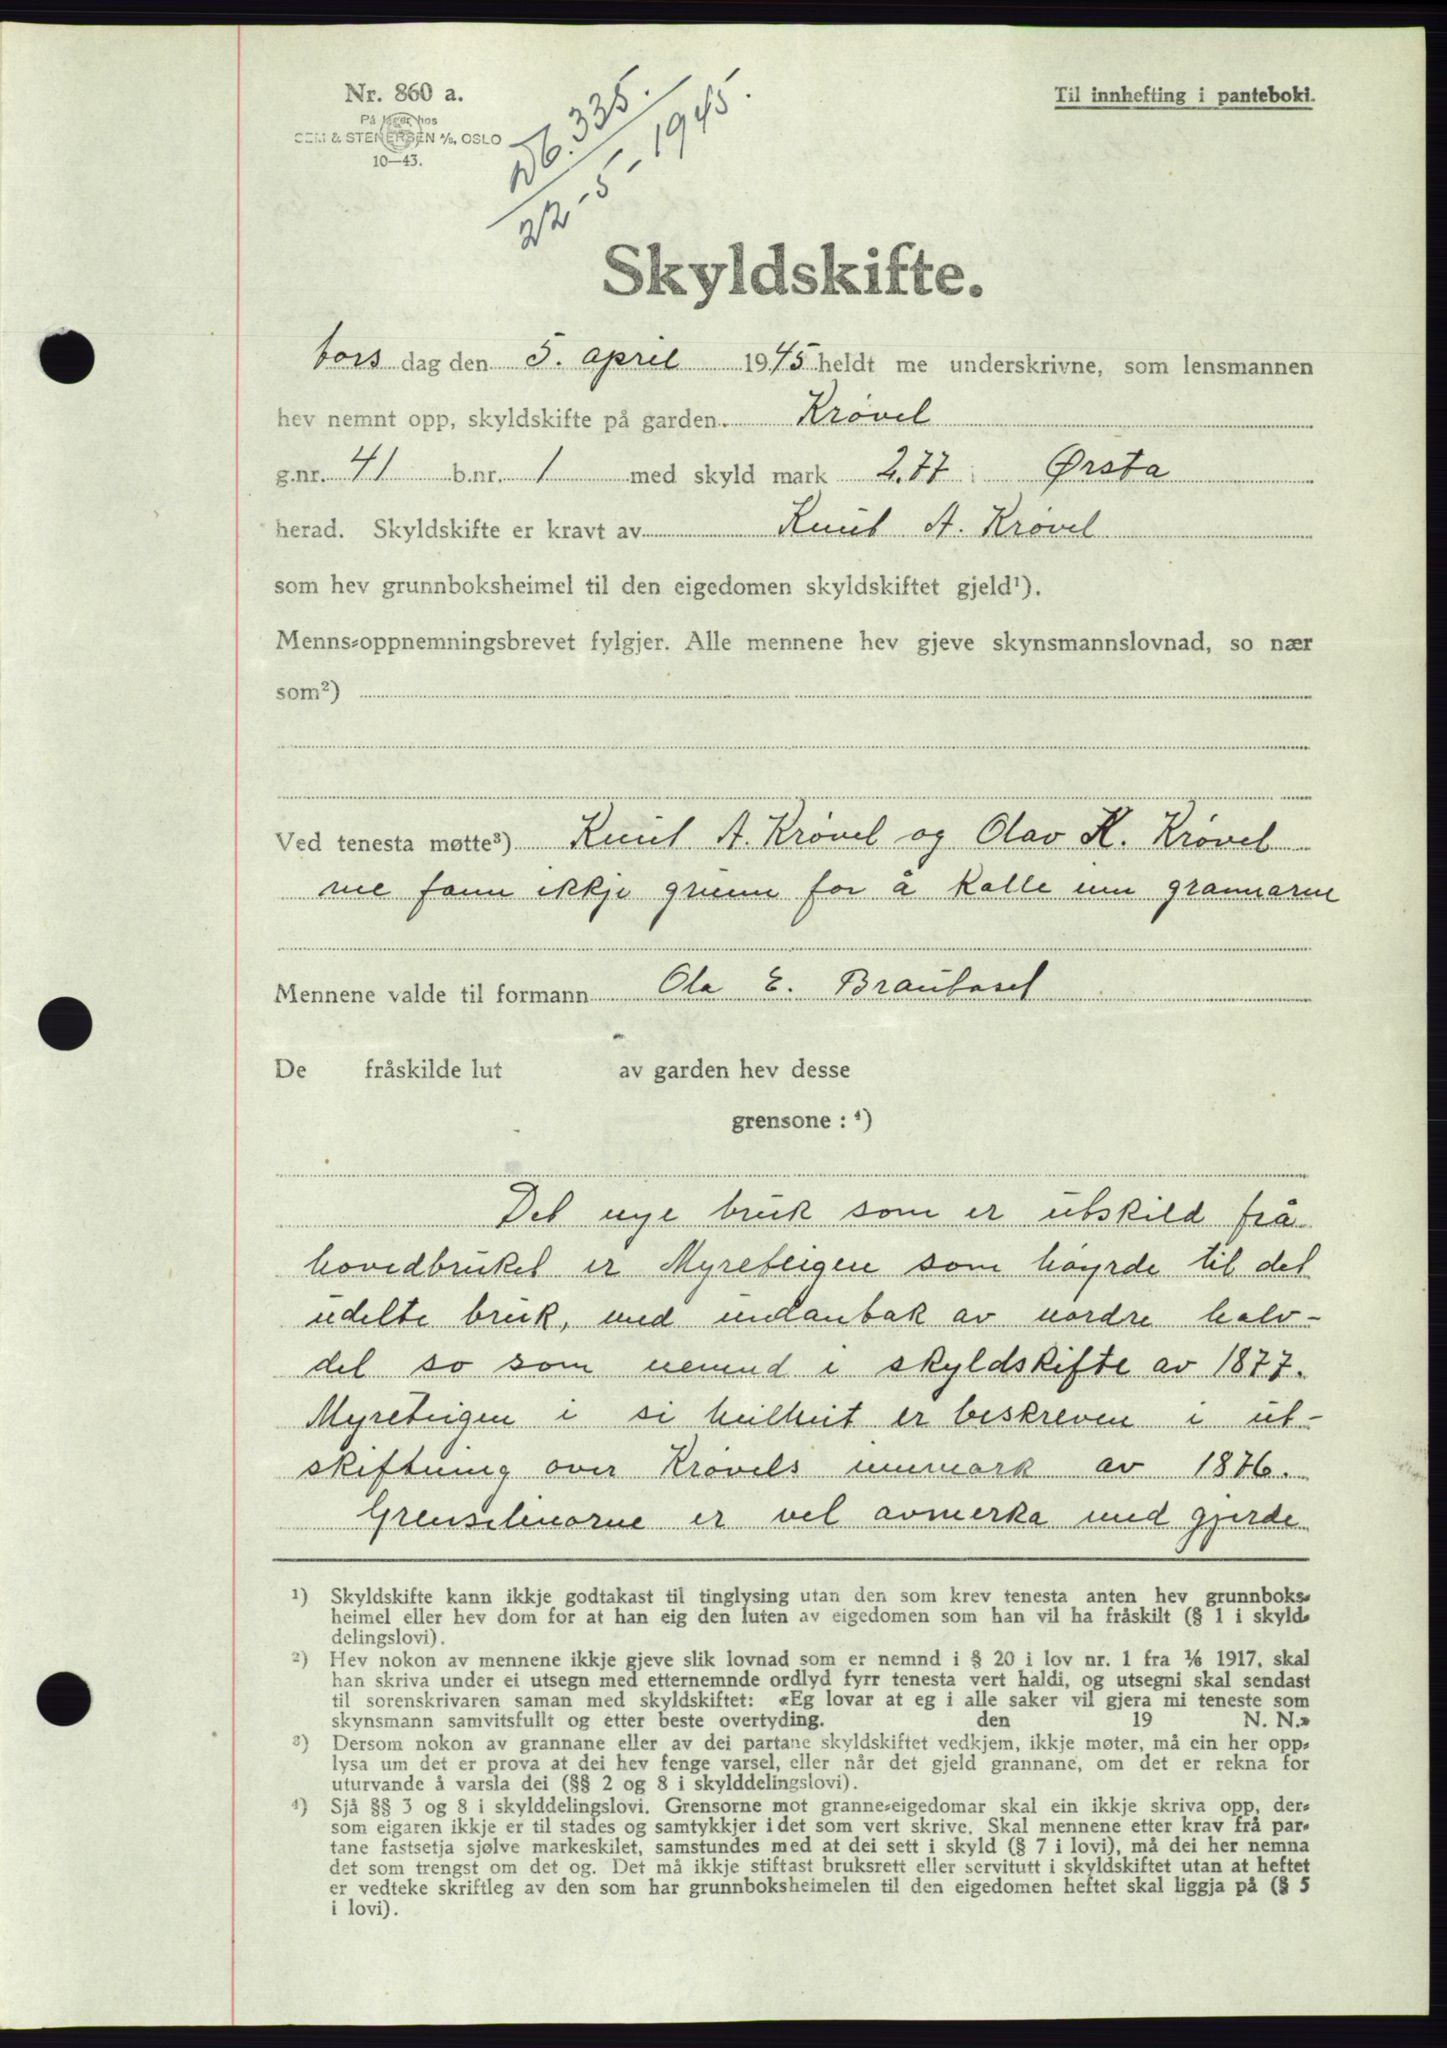 Nr. 860 a.
På lager hos
SEM & STENERSEN A/S, OSLO
10—43.
Til innhefting i panteboki.
Db. 335.
22-5-1945.
Skyldskifte.
tors dag den 5. april 1945 heldt me underskrivne, som lensmannen
hev nemnt opp, skyldskifte på garden Krøvel
g.nr. 41 b.nr. 1 med skyld mark 2.77 i Ørsta
herad. Skyldskifte er kravt av Knut A. Krøvel
som hev grunnboksheimel til den eigedomen skyldskiftet gjeld¹).
Menns-oppnemningsbrevet fylgjer. Alle mennene hev gjeve skynsmannslovnad, so nær
som²)
Ved tenesta møtte³) Knut A. Krøvel og Olav K. Krøvel
me fann ikkje grunn for å kalle inn grannarne
Mennene valde til formann Ola E.
De fråskilde lut av garden hev desse
grensone : ⁴)
Det nye bruk som er utskild frå
hovedbruket er Myreteigen som høyrde til det
udelte bruk, med undantak av nordre halv-
del so som nemnd i skyldskifte av 1877.
Myreteigen i si heilheit er beskreven i ut-
skiftning over Krøvels innmark av 1876.
Grenselinorne er vel avmerka med gjerde
¹) Skyldskifte kann ikkje godtakast til tinglysing utan den som krev tenesta anten hev grunnboks-
heimel eller hev dom for at han eig den luten av eigedomen som han vil ha fråskilt (§ 1 i skyld-
delingslovi).
²) Hev nokon av mennene ikkje gjeve slik lovnad som er nemnd i § 20 i lov nr. 1 fra 1/6 1917, skal
han skriva under ei utsegn med etternemnde ordlyd fyrr tenesta vert haldi, og utsegni skal sendast
til sorenskrivaren saman med skyldskiftet: «Eg lovar at eg i alle saker vil gjera mi teneste som
skynsmann samvitsfullt og etter beste overtyding. den 19 N. N.»
³) Dersom nokon av grannane eller av dei partane skyldskiftet vedkjem, ikkje møter, må ein her opp-
lysa um det er prova at dei hev fenge varsel, eller når det gjeld grannane, om det er rekna for
uturvande å varsla dei (§§ 2 og 8 i skylddelingslovi).
⁴) Sjå §§ 3 og 8 i skylddelingslovi. Grensorne mot granne-eigedomar skal ein ikkje skriva opp, der-
som eigaren ikkje er til stades og samtykkjer i det som vert skrive. Skal mennene etter krav frå par-
tane fastsetja sjølve markeskilet, samstundes med at dei sett i skyld (§ 7 i lovi), må dei her nemna
det som trengst om det og. Det må ikkje stiftast bruksrett eller servitutt i skyldskiftet utan at heftet
er vedteke skriftleg av den som har grunnboksheimelen til den eigedomen heftet skal liggja på (§ 5
i lovi).